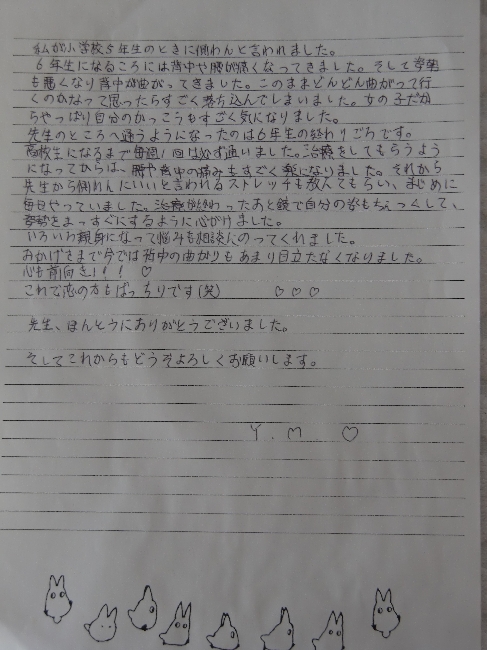 私が小学校5年生のときに側わんと言われました。
6年生になるころには背中や腰が痛くなってきました。そして姿勢
も悪くなり背中が曲がってきました。このままどんどん曲がって行
くのかなって思ったらすごく落ち込んでしまいました。女の子だか
らやっぱり自分のかっこうもすごく気になりました。
先生のところへ通うようになったのは6年生の終わりごろです。
高校生になるまで毎週1回は必ず通いました。治療をしてもらうよう
になってからは、腰や背中の痛みもすごく楽になりました。それから
先生から側わんにいいと言われるストレッチも教えてもらい、まじめに
毎日やっていました。治療が終わったあと鏡で自分の姿もチェックして、
姿勢をまっすぐにするように心がけました。
いろいろ親身になって悩みも相談にのってくれました。
おかげさまで今では背中の曲がりもあまり目立たなくなりました。
心も前向き!!! ♡
これで恋の方もばっちりです(笑) ♡♡♡
先生、ほんとうにありがとうございました。
そしてこれからもどうぞよろしくお願いします。
Y.M ♡